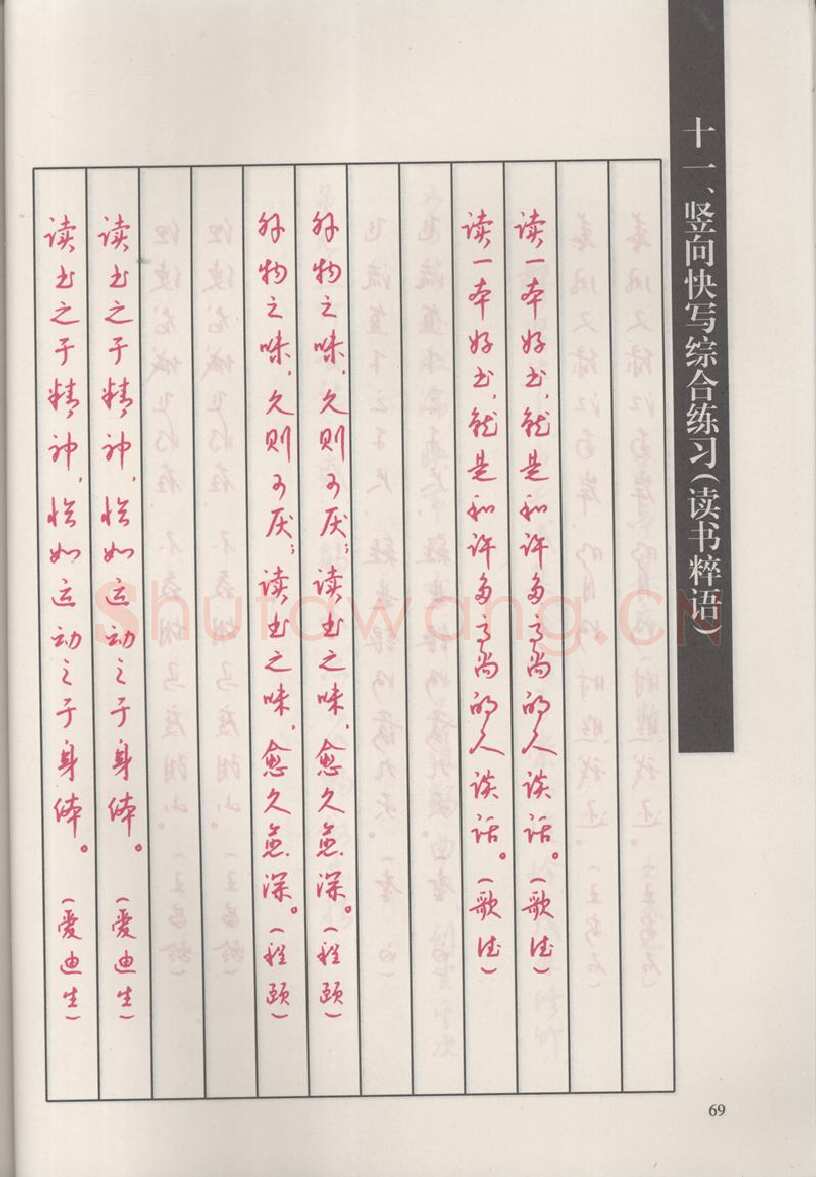 十一、竖向快写综合练习(读书粹语)
读一本好书,就是和许多高尚的人谈话。(歌德)
读一本好书,就是和许多高尚的人谈话。(歌德)
外物之味,久则可厌;读书之味,愈久愈深。(程颐)
外物之味,久则可厌;读书之味,愈久愈深。(程颐)
读书之于精神,恰如运动之于身体。(爱迪生)
读书之于精神,恰如运动之于身体。(爱迪生)
Shufawang.CN
69